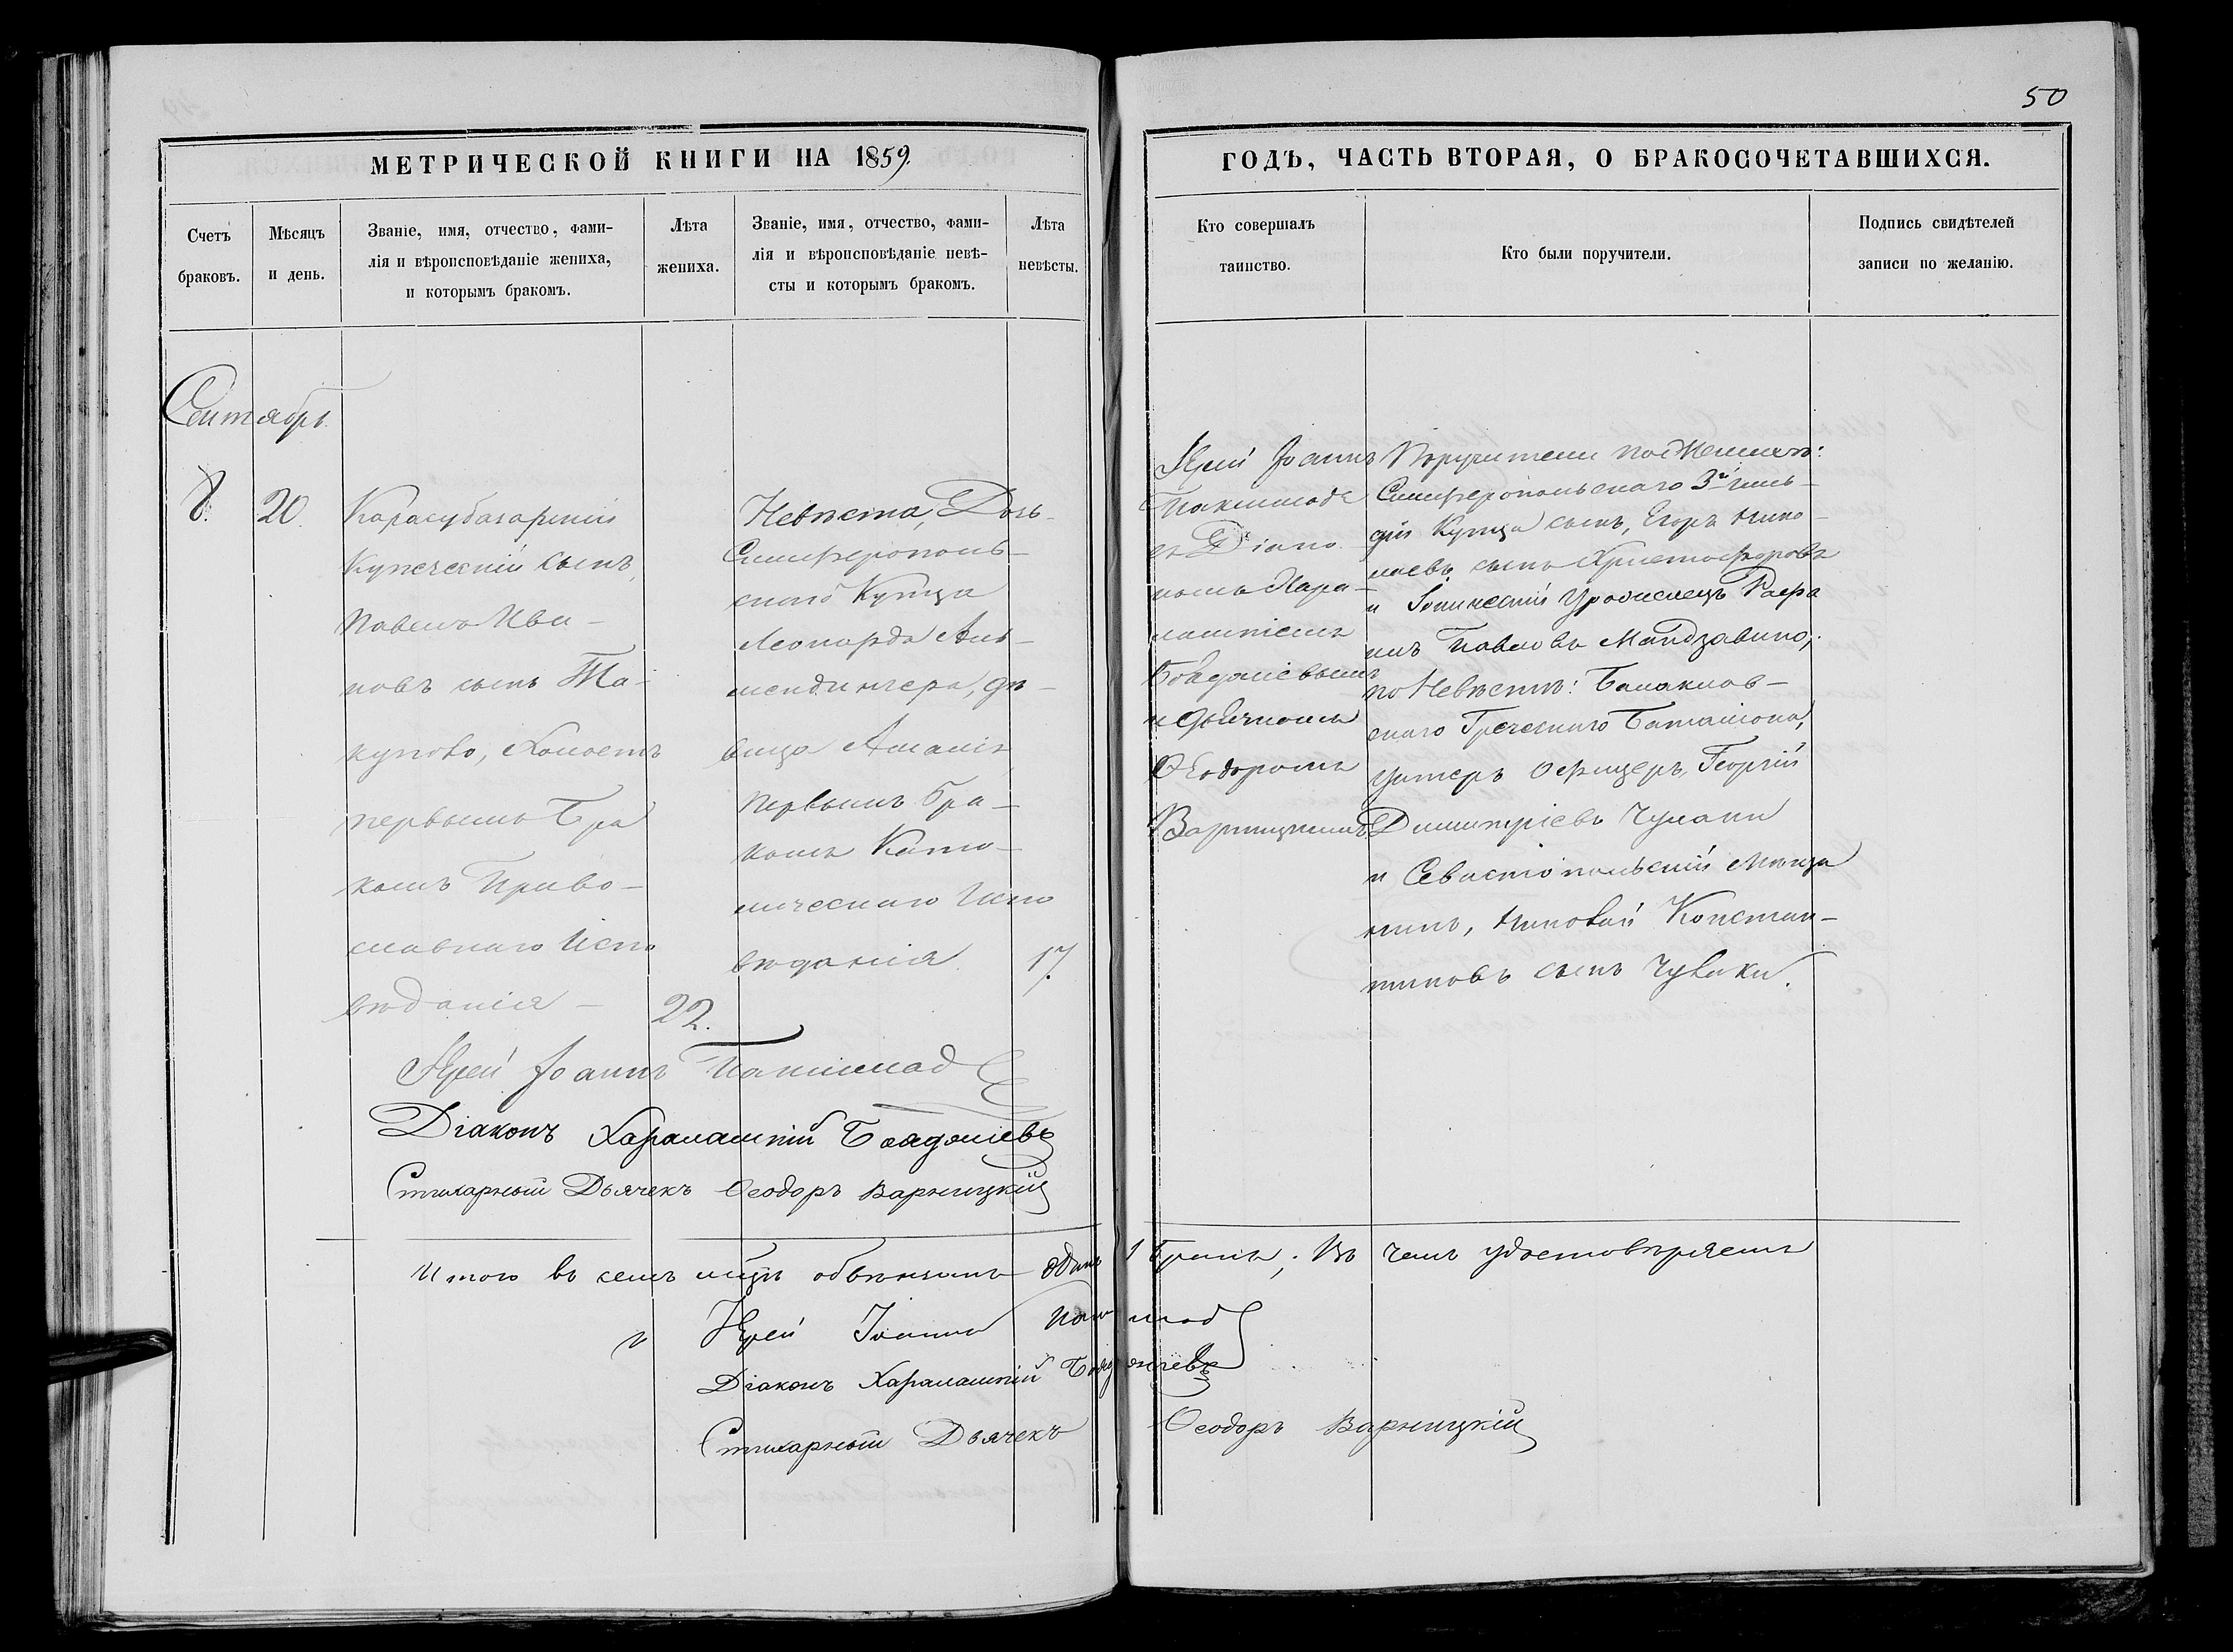 50
МЕТРИЧЕСКОЙ КНИГИ НА 1859.
ГОДЪ, ЧАСТЬ ВТОРАЯ, О БРАКОСОЧЕТАВШИХСЯ.
Счетъ
браковъ.
Мѣсяцъ
и день.
Званіе, имя, отчество, фами-
лія и вѣроисповѣданіе жениха,
и которымъ бракомъ.
Лѣта
жениха.
Званіе, имя, отчество, фами-
лія и вѣроисповѣданіе невѣ-
сты и которымъ бракомъ.
Лѣта
невѣсты.
Кто совершалъ
таинство.
Кто были поручители.
Подпись свидѣтелей
записи по желанію.
Сентябрь
8.
20.
Карасубазарскій
Купеческій сынъ,
Павелъ Ива-
новъ сынъ
холостъ
первымъ Бра
комъ Право-
славнаго Испо
вѣданія —
22.
Невѣста, Дочь
Симферополь-
скаго Купца
Леопарда
дѣ-
вица Амалія
первымъ бра-
комъ Като-
лическаго Испо
вѣданія
17.
Іерей Іоаннъ
съ Діако-
номъ Хара-
лампіемъ
и дьячкомъ
Ѳеодоромъ
Варницкимъ
Поручители по Женихѣ:
Симферопольскаго 3й гиль-
діи Купца сынъ, Егоръ Нико-
лаевъ сынъ Христофоровъ
и Уроженецъ Рафа
илъ Павловъ Мандзавино;
по Невѣстѣ: Балаклав-
скаго Греческаго Баталіона,
Унтеръ Офицеръ, Георгій
Димитріевъ Чулаки
и Севастопольскій Мѣща
нинъ, Николай Констан-
тиновъ сынъ
Іерей Іоаннъ
Діаконъ Харалампій
Стихарный Дьячекъ Ѳеодоръ Варницкій
Итого въ семъ мцѣ обвѣнчанъ одинъ 1 Бракъ; Въ чемъ удостовѣряемъ
Іерей Іоаннъ
Діаконъ Харалампій
Стихарный Дьячекъ Ѳеодоръ Варницкій